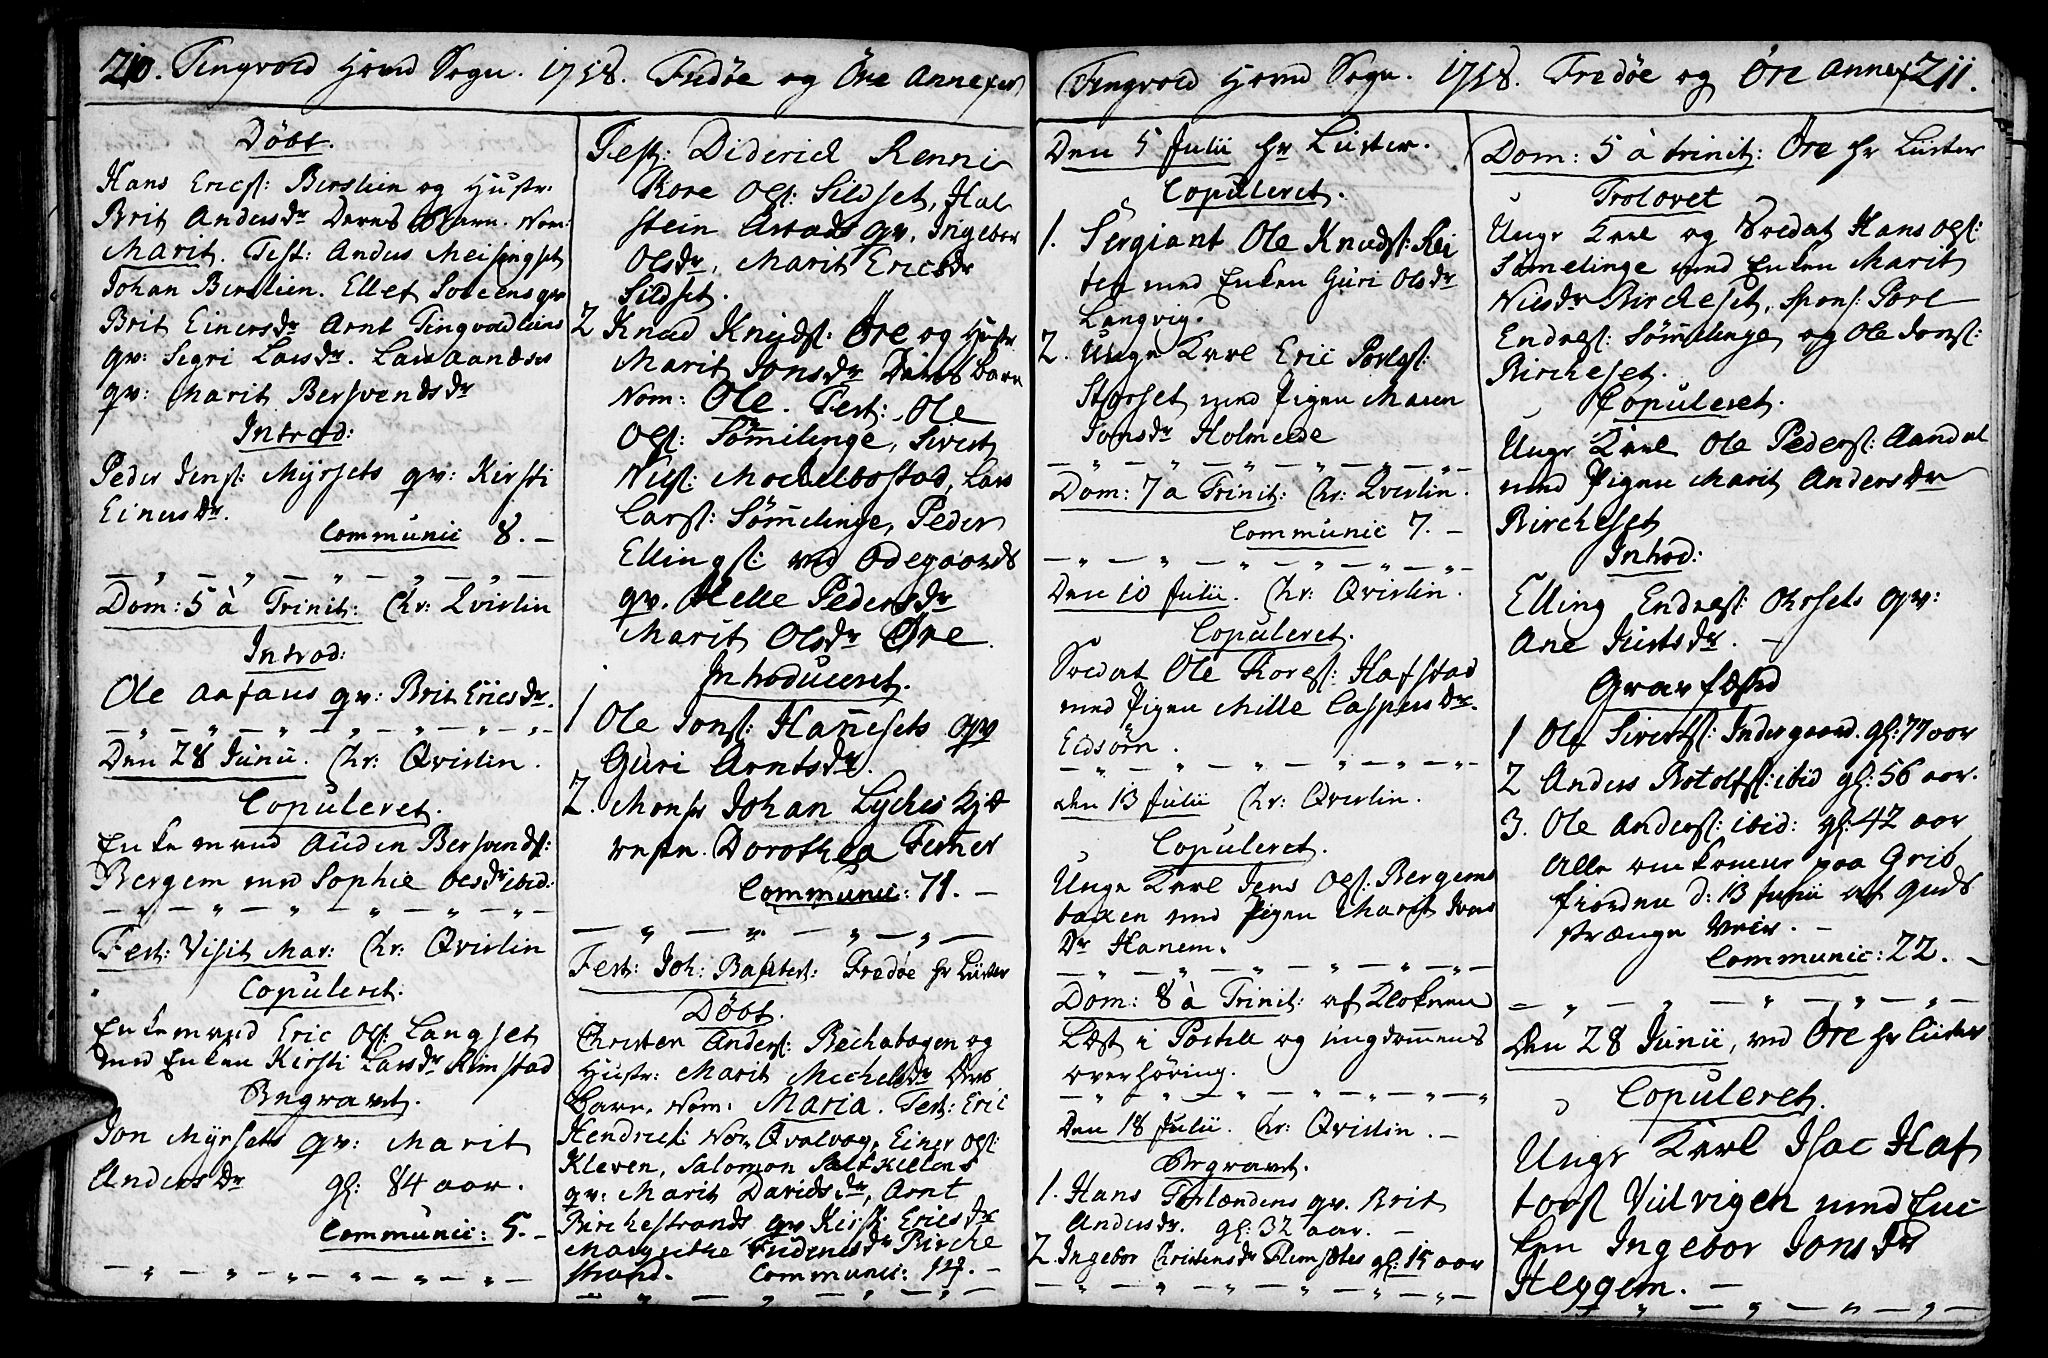 210. Tingvold Hoved Sogn. 1758. Fredøe og Öre Annexer
Döbt.
Hans Erics: Berslien og Hustr:
Brit Andersdr Deres Barn. Nom:
Marit. Test: Anders Meisingset
Johan Berslien. Ellet
Brit Einersdr Arnt Tingvold
qv: Segri Larsdr.
qv: Marit Bersvendsdr
Introd:
Peder Jens: Myrsets qv: Kirsti
Einersdr.
Communic 8. –
Dom: 5 à Trinit: Chr: Qvislin
Introd:
Ole Aafaus qv: Brit Ericsdr.
Den 28 Junii. Chr: Qvislin.
Copuleret.
Enkemand Auden Bersvends:
Bergem med Sophie Olsdr ibid:
Fest: Visit Mar: Chr: Qvislin
Copuleret:
Enkemand Eric Ols: Langset
med Enken Kirsti Larsdr Rimstad
Begravet.
Jon Myrsets qv: Marit
Andersdr gl: 84 aar.
Communic: 5. –
Test: Diderich Renni
Kore Ols: Sildset, Hal
stein Arsads qv. Ingebor
Olsdr, Marit Ericsdr
Sildset.
2 Knud Knuds: Öre og Hustr
Marit Jonsdr Deres Barn
Nom: Ole. Test: Ole
Ols: Sömelinge, Sivert
Nils: Mochelbostad, Lars
Lars: Sömelinge, Peder
Ellings: ved Ödegaards
qv. Helle Pedersdr
Marit Olsdr Öre.
Introduceret.
1 Ole Jons: Hanesets qv
Guri Arntsdr.
2. Monsr Johan Lyches Kjæ
reste. Dorothea Ferner
Communic: 71. –
Fest: Joh: Baptest: Fredøe hr Lüster
Döbt.
Christen Anders: Bechabogen og
Hustr: Marit Michelsdr Ders
Barn. Nom: Maria. Test: Eric
Hendrich: Nor, Qvalvog, Einer Ols:
Kleven, Salomon Saltkiellens
qv: Marit Davidsdr, Arnt
Birchestrands qv Kirst: Ericsdr
Margrethe Birche
strand. Communic: 44. –
Tingvold Hoved Sogn. 1758. Fredøe og Öre Annex 211.
Den 5 Julii hr Lüster.
Copuleret.
1. Sergiant Ole Knuds: Rei
ten med Enken Guri Olsdr
Langvig.
2. Unge Karl Eric Povels:
Storset med Pigen Maren
Jonsdr Holmeide
Dom: 7 a Trinit: Chr: Qvislin.
Communic 7. –
Den 10 Julii. Chr: Qvislin.
Copuleret.
Soldat Ole Kores: Hafstad
med Pigen Mille Caspersdr.
Eidsörn.
den 13 Julii Chr: Qvislin.
Copuleret.
Unge Karl Jens Ols: Bergems
backen med Pigen Marit Ivers
Dr Hanem.
Dom: 8 à Trinit: af Klokeren
Læst i Postill og ungdomens
overhöring.
Den 18 Julii. Chr: Qvislin. –
Begravet.
1. Hans Torlændens qv. Brit
Andersdr. gl: 32 aar. –
2. Ingebor Christensdr Flemsetes gl: 15 aar
Dom: 5 à trinit: Öre hr Lüster
Trolovet
Unge Karl og Soldat Hans Ols:
Sömelinge med Enken Marit
Nilsdr Bircheset, Spons: Povl
Endres: Sömelinge og Ole Jons:
Bircheset.
Copuleret.
Unge Karl Ole Peders: Aandal
med Pigen Marit Andersdr
Bircheset
Introd:
Elling Endres: Ohrsets qv:
Ane Sivertsdr. –
Gravfæsted
1 Ole Siverts: Indergaard. gl: 77 aar
2 Anders Botolfs: ibid gl: 56 aar.
3. Ole Anders: ibid: gl: 42 aar
Alle omkomer paa Grib
fiorden d: 13 Junii af Guds
strænge Veir. –
Communic: 22. –
Den 28 Junii, ved Öre hr Lüster
Copuleret.
Unge Karl Isac Haf
tors: Viilvigen med En
ken Ingebor Jonsdr
Heggem. –